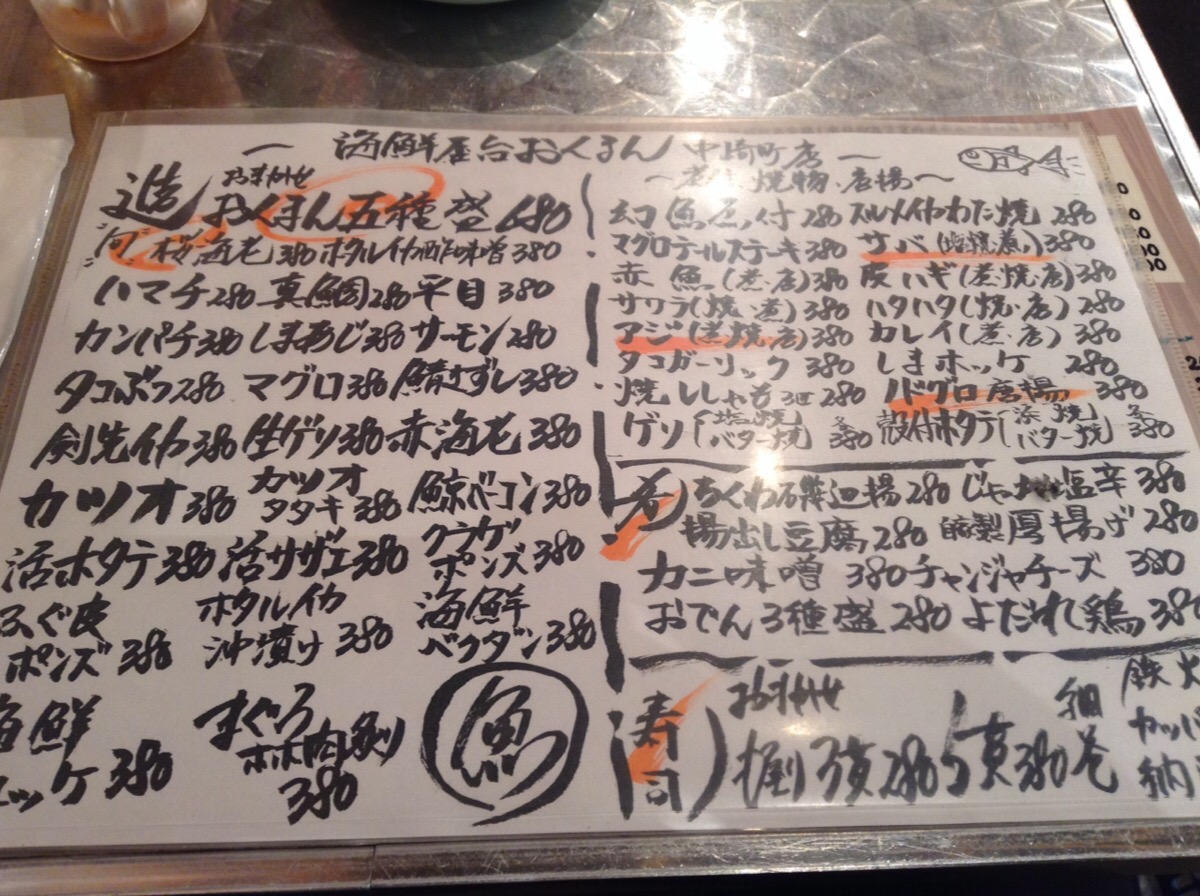 一 海鮮屋台おくまん 中崎町店 一
造 おまかせ
おくまん五種盛 680
旬 桜海老 380 ホタルイカ酢味噌 380
ハマチ 280 真鯛 280 平目 380
カンパチ 380 しまあじ 380 サーモン 280
タコぶつ 280 マグロ 380 鯖きずし 380
剣先イカ 380 生ゲソ 380 赤海老 380
カツオ 380 カツオタタキ 380 鯨ベーコン 380
活ホタテ 380 活サザエ 380 クラゲポンズ 380
ふぐ皮ポンズ 380 ホタルイカ沖漬け 380 海鮮バクダン 380
海鮮ユッケ 380 まぐろホホ肉炙り 380
魚
〜煮付 焼物 唐揚〜
幻魚唐付 280 スルメイカわた焼 280
マグロテールステーキ 380 サバ(塩焼.煮) 380
赤魚(煮.唐) 380 皮ハギ(煮.焼.唐) 380
サワラ(焼.煮) 380 ハタハタ(焼.唐) 280
アジ(煮.焼.唐) 380 カレイ(煮.唐) 380
タコガーリック 380 しまホッケ 280
焼ししゃも 3匹 280 ノドグロ唐揚 380
ゲソ(塩焼 バター焼 各380 殻付ホタテ(浜焼 バター焼 各380
ちくわ石垣辺揚 280 塩辛 380
揚出し豆腐 280 自家製厚揚げ 280
カニ味噌 380 チャンジャチーズ 380
おでん3種盛 280 よだれ鶏 380
寿司 おまかせ
握り 3貫 280 5貫 380 細巻
鉄火
カッパ
納